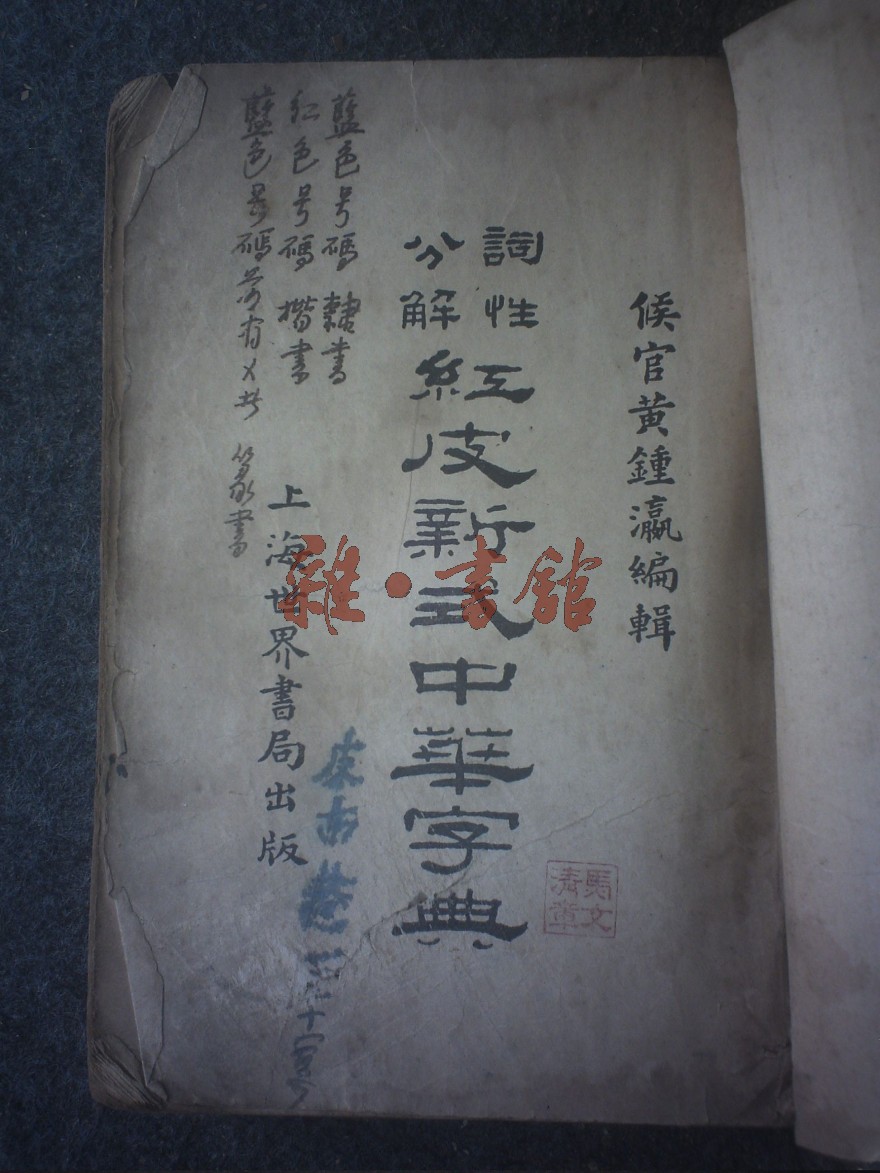 侯官黄鍾瀛編輯
詞性分解
紅皮新式中華字典
上海世界書局出版
藍色号碼 隸書
红色号碼 楷書
藍色号碼旁有乂者 篆書
馬文清章
雜·書舘